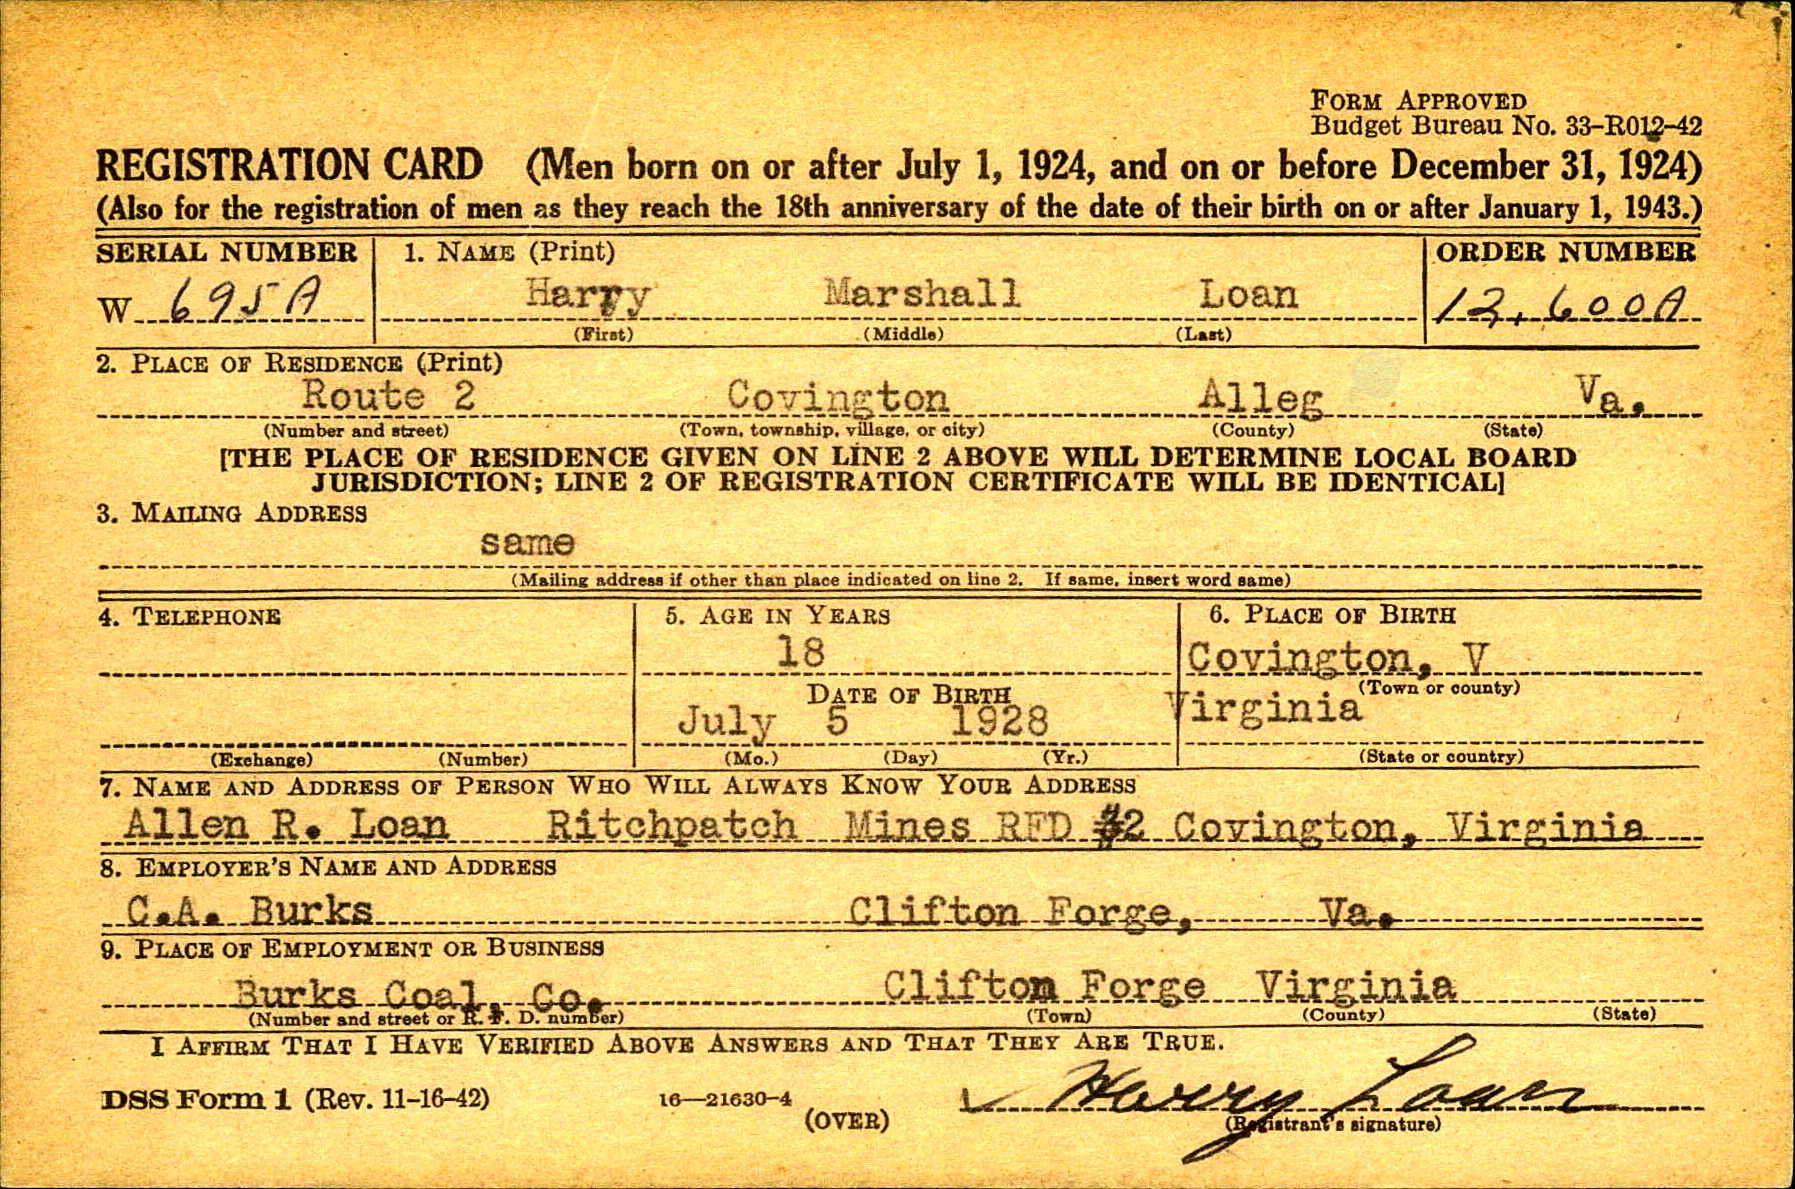 FORM APPROVED
Budget Bureau No. 33-R012-42
REGISTRATION CARD (Men born on or after July 1, 1924, and on or before December 31, 1924)
(Also for the registration of men as they reach the 18th anniversary of the date of their birth on or after January 1, 1943.)
SERIAL NUMBER 1. NAME (Print) ORDER NUMBER
W 695A Harry Marshall Loan 12,600A
(First) (Middle) (Last)
2. PLACE OF RESIDENCE (Print)
Route 2 Covington Alleg Va.
(Number and street) (Town, township, village, or city) (County) (State)
[THE PLACE OF RESIDENCE GIVEN ON LINE 2 ABOVE WILL DETERMINE LOCAL BOARD
JURISDICTION; LINE 2 OF REGISTRATION CERTIFICATE WILL BE IDENTICAL]
3. MAILING ADDRESS
same
(Mailing address if other than place indicated on line 2. If same, insert word same)
4. TELEPHONE 5. AGE IN YEARS 6. PLACE OF BIRTH
18 Covington, V
DATE OF BIRTH (Town or county)
July 5 1928 Virginia
(Exchange) (Number) (Mo.) (Day) (Yr.) (State or country)
7. NAME AND ADDRESS OF PERSON WHO WILL ALWAYS KNOW YOUR ADDRESS
Allen R. Loan Ritchpatch Mines RFD #2 Covington, Virginia
8. EMPLOYER'S NAME AND ADDRESS
C.A. Burks Clifton Forge, Va.
9. PLACE OF EMPLOYMENT OR BUSINESS
Burks Coal, Co. Clifton Forge Virginia
(Number and street or R. F. D. number) (Town) (County) (State)
I AFFIRM THAT I HAVE VERIFIED ABOVE ANSWERS AND THAT THEY ARE TRUE.
DSS Form 1 (Rev. 11-16-42) 16—21630-4 Harry Loan
(OVER) (Registrant's signature)